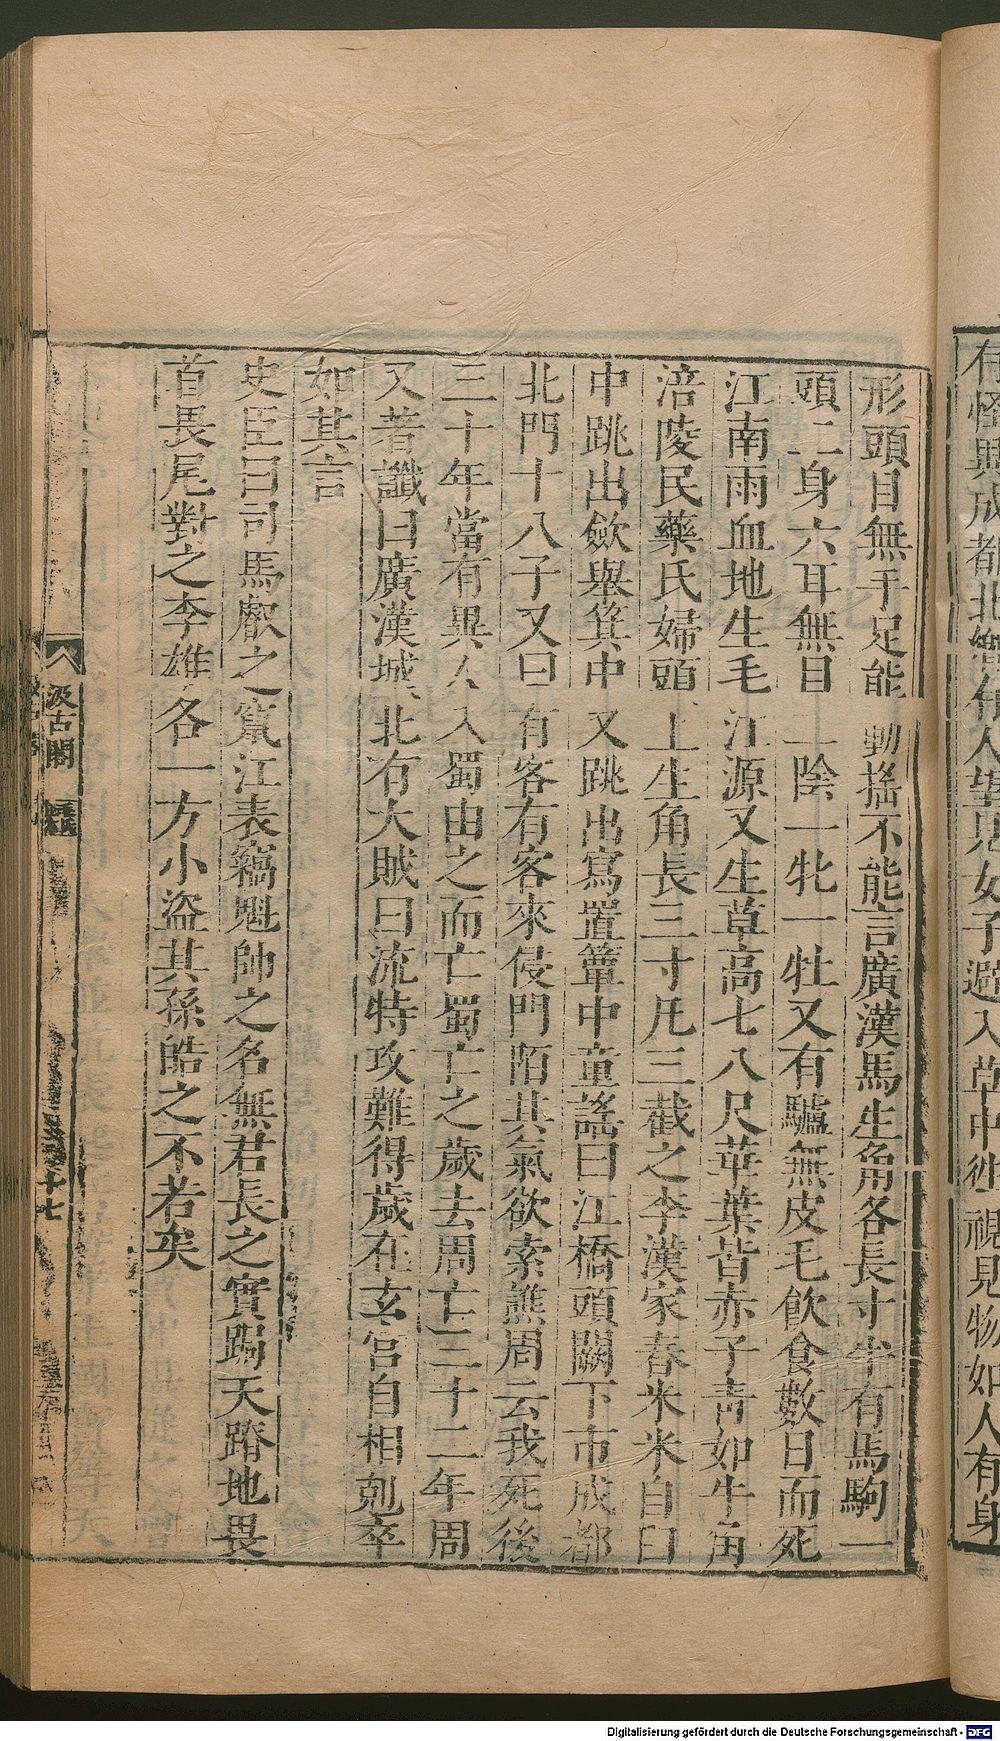 有怪異成都北鄉有人望見女子避入草中往視見物如人有身
形頭目無手足能動搖不能言廣漢馬生角各長寸半有馬駒一
頭二身六耳無目二陰一牝一牡又有驢無皮毛飲食數日而死
江南雨血地生毛江源又生草高七八尺華葉皆赤子青如牛角
涪陵民藥氏婦頭上生角長三寸凡三截之李漢家舂米米自臼
中跳出斂舉箕中又跳出寫置簞中童謠曰江橋頭闕下市成都
北門十八子又曰有客有客來侵門陌其氣欲索譙周云我死後
三十年當有異人入蜀由之而亡蜀亡之歲去周亡三十二年周
又著讖曰廣漢城北有大賊曰流特攻難得歲在玄宮自相剋卒
如其言
史臣曰司馬叡之竄江表竊魁帥之名無君長之實跼天蹐地畏
首畏尾對之李雄各一方小盜其孫皓之不若矣
汲古閣
Digitalisierung gefördert durch die Deutsche Forschungsgemeinschaft - DFG